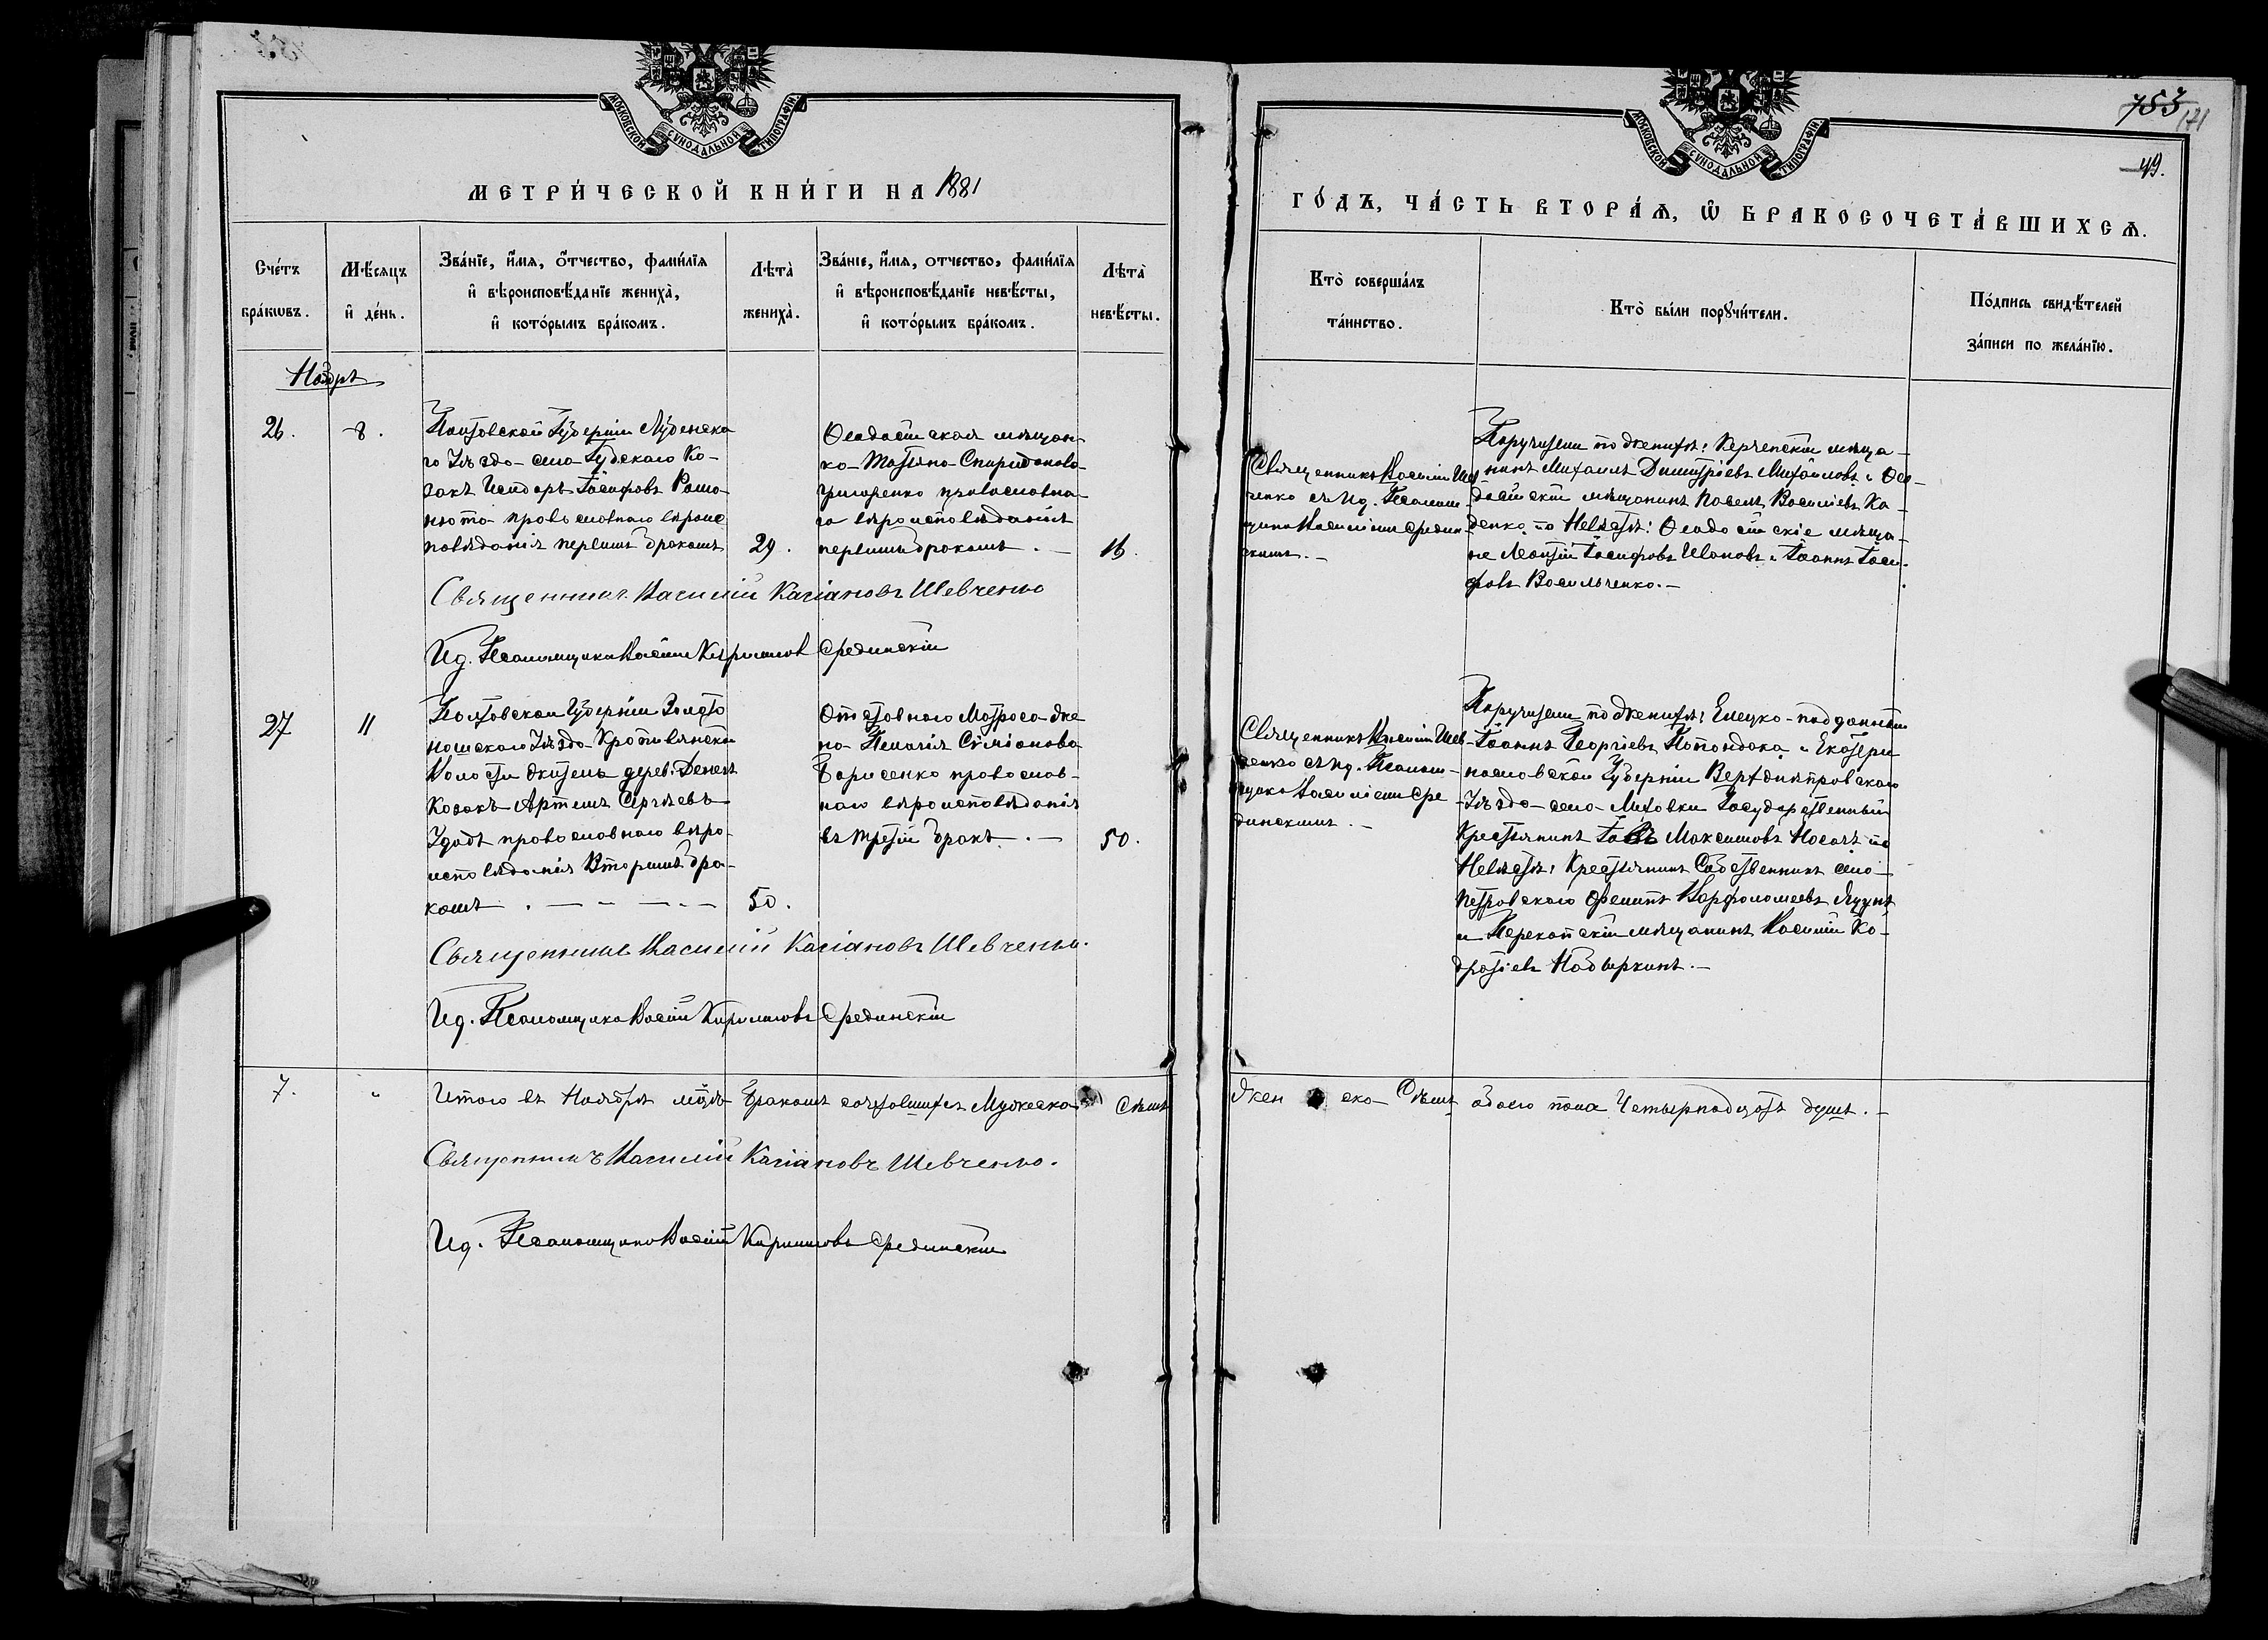 МОСКОВСКОЙ СУНОДАЛЬНОЙ ТИПОГРАФІИ
МЕТРИ́ЧЕСКОЙ КНИ́ГИ НА 1881
Сче́тъ
бра́кωвъ.
Мѣ́сяцъ
и҆ де́нь.
Зва́нїе, и҆́мѧ, ѻ҆́тчество, фами́лїѧ
и҆ вѣроисповѣ́данїе жениха̀,
и҆ кото́рымъ бра́комъ.
Лѣта̀
жениха̀.
Зва́нїе, и҆́мѧ, отчество, фами́лїѧ
и҆ вѣроисповѣ́данїе невѣ́сты,
и҆ кото́рымъ бра́комъ.
Лѣта̀
невѣ́сты.
Ноябрь
26.
8.
Полтовской Губерніи Лубенска
го Уѣздо села Губскаго Ко-
закъ Исидоръ Іосифовъ Рома-
нюта провославнаго вѣроис
повѣданія первымъ бракомъ
29.
мѣщан-
ка Татьяна Спиридонова
Григоренко православна-
го вѣроисповѣданія
первымъ бракомъ. —
16.
Священникъ Василій Касіановъ Шевченко
Ид. Псаломщика Василій Кириловъ Срединскій
27
11
Полтовской Губерніи Золото
ношскаго Уѣздо Кропивянской
Волости житель дерев.
Козакъ Артемъ Сергѣевъ
провославнаго вѣро-
исповѣданія Вторымъ бра-
комъ . — — — . —
50.
Отставного Матроса же
на Пелагія Симіонова
Борисенко провослав-
наго вѣроисповѣданія
въ третій бракъ. —
50.
Священникъ Василій Касіановъ Шевченко.
Ид. Псаломщика Василій Кириловъ Срединскій
7.
"
Итого въ Ноябрѣ мѣсяцѣ Бракомъ сочетавшихся Мужеска Семь
Священникъ Василій Касіановъ Шевченко.
Ид. Псаломщика Василій Кириловъ Срединскій
МОСКОВСКОЙ СУНОДАЛЬНОЙ ТИПОГРАФІИ
753
171
49.
ГО́ДЪ, ЧА́СТЬ ВТОРА́Ѧ, Ѽ БРАКОСОЧЕТА́ВШИХСѦ.
Кто̀ соверша́лъ
та́инство.
Кто̀ бы́ли порꙋчи́тели.
По́дпись свидѣ́телей
за́писи по жела́нїю.
Священникъ Василій Шев
ченко съ Ид. Псалом-
щика Василіемъ Средин-
скимъ. —
Поручители по женихѣ: Керченскій мѣща-
нинъ Михаилъ Димитріевъ Михайловъ и
мѣщанинъ Павелъ Василіевъ Ка-
денко, по Невѣстѣ: мѣща-
не Леонтій Іосифовъ Ивановъ и Іоаннъ Іоси-
фовъ Васильченко. —
Священникъ Василій Шев-
ченко съ Ид. Псалом-
щика Василіемъ Сре
динскимъ. —
Поручители по женихѣ: подданный
Іоаннъ Георгіевъ и Екатери
нославской Губерніи Верхднѣпровскаго
Уѣздо села Государственный
Крестьянинъ Максимовъ Носачъ по
Невѣстѣ: Крестьянинъ Собственникъ села
Петровскаго Варфоломеевъ
и Перекопскій мѣщанинъ Василій Ко-
дратіевъ
Женско Семь обоего пола Четырнадцать душъ. —